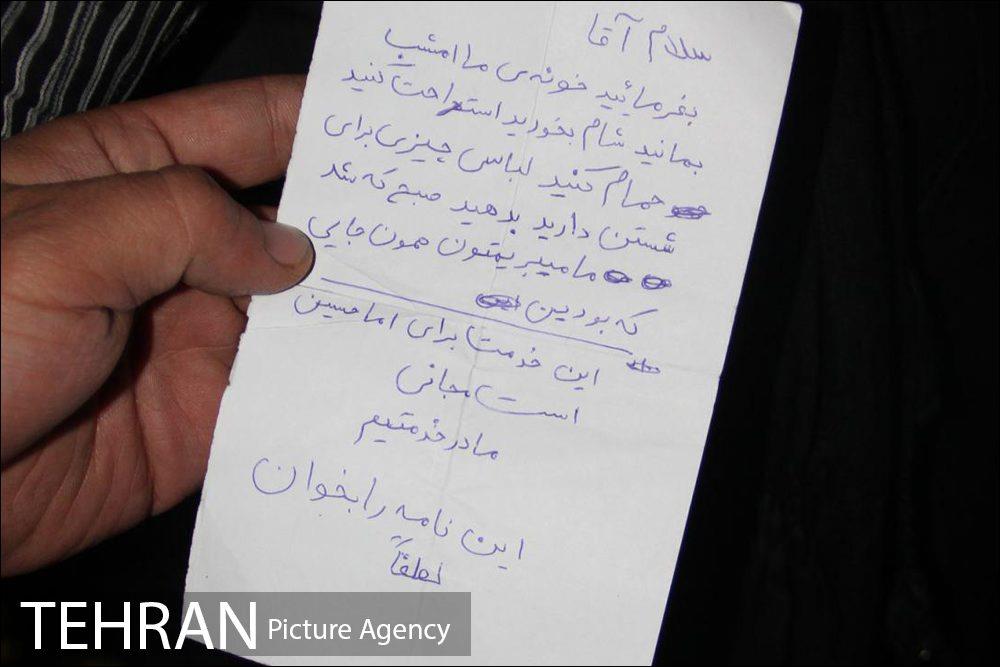 سلام آقا
بفرمائید خونه‌ی ما امشب
بمانید شام بخورید استراحت کنید
حمام کنید لباس چیزی برای
شستن دارید بدهید صبح که شد
ما میبریمتون همون جایی
که بودین
این خدمت برای اما حسین
است مجانی
ما در خدمتیم
این نامه را بخوان
لطفاً
TEHRAN Picture Agency